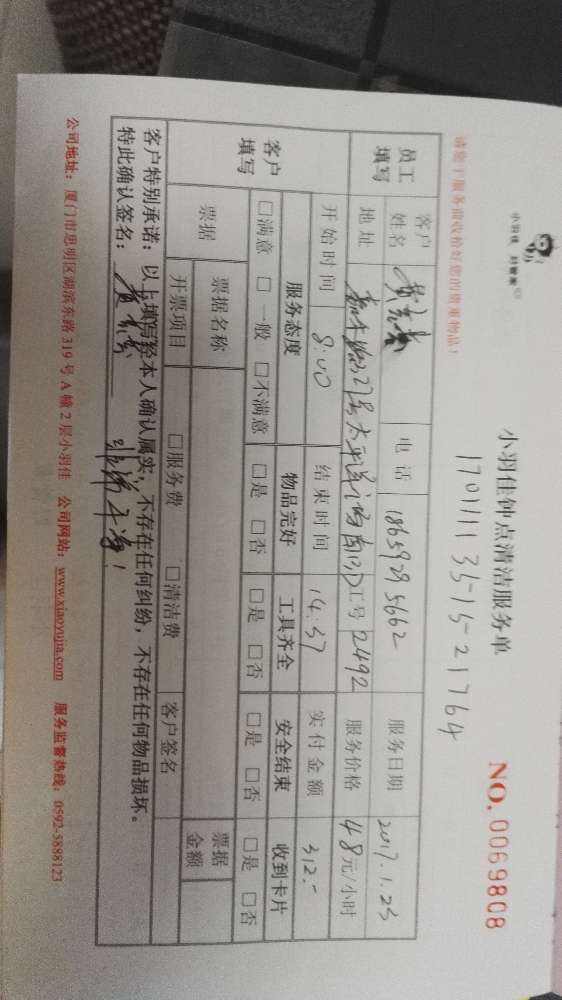 小羽佳 好管家
小羽佳钟点清洁服务单
NO. 0069808
170111135-15-21764
请您于服务前收拾好您的贵重物品!
员工填写 客户姓名 电话 18659295662 服务日期 2017.1.23
地址 27号太平洋 工号 2492 服务价格 48元/小时
客户填写 开始时间 8:00 结束时间 14:37 实付金额 312.-
服务态度 物品完好 工具齐全 安全结束 收到卡片
□满意 □一般 □不满意 □是 □否 □是 □否 □是 □否 □是 □否
票据 票据名称 票据金额
开票项目 □服务费 □清洁费 客户签名
客户特别承诺:以上填写经本人确认属实,不存在任何纠纷,不存在任何物品损坏。
特此确认签名:
公司地址:厦门市思明区湖滨东路 319 号 A 幢 2 层小羽佳 公司网站:www.xiaoyujia.com 服务监督热线:0592-5888123